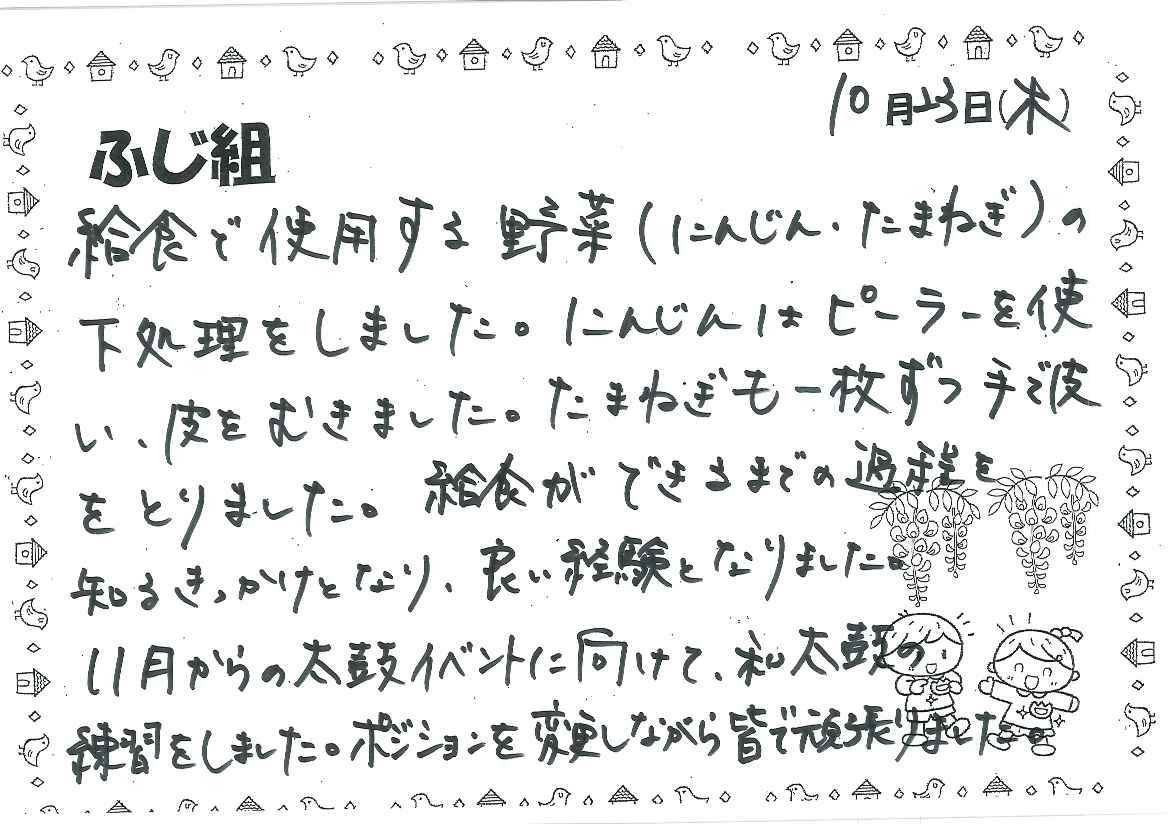 10月23日(木)
ふじ組
給食で使用する野菜(にんじん・たまねぎ)の
下処理をしました。にんじんはピーラーを使
い、皮をむきました。たまねぎも一枚ずつ手で皮
をとりました。給食ができるまでの過程を
知るきっかけとなり、良い経験となりました。
11月からの太鼓イベントに向けて、和太鼓の
練習をしました。ポジションを変更しながら皆で頑張りました。